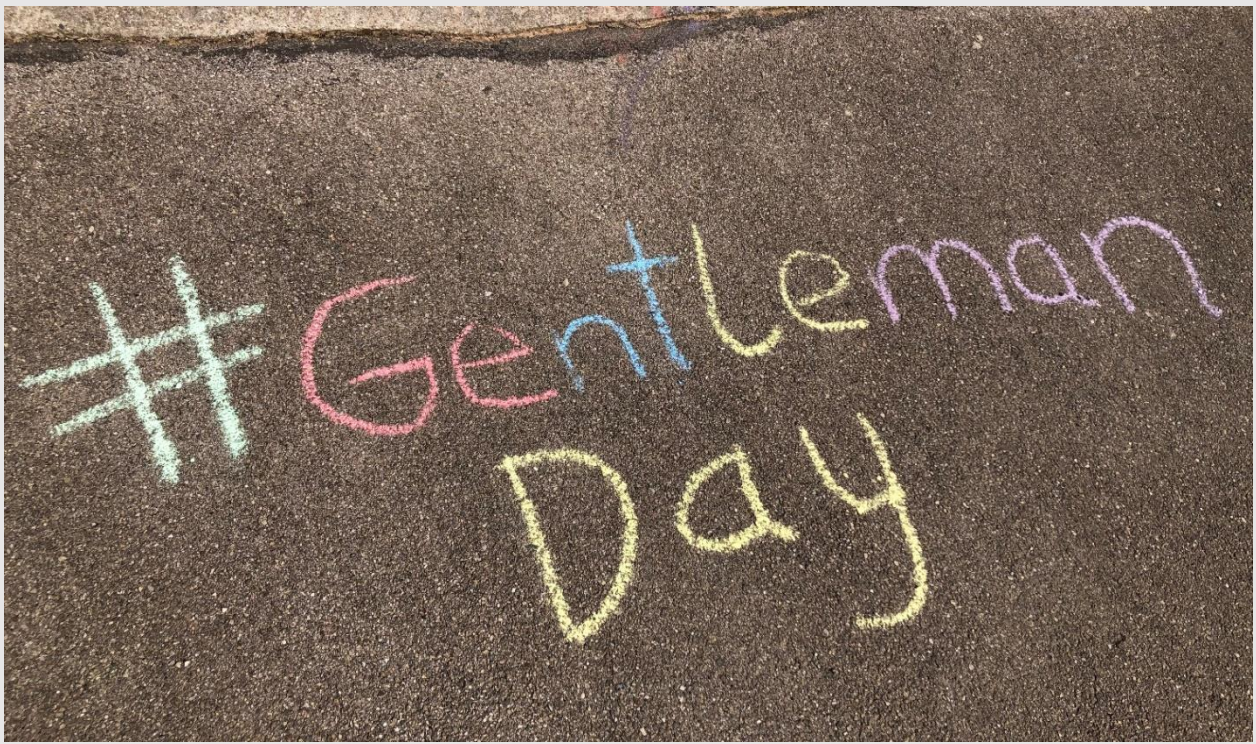 #Gentleman
Day